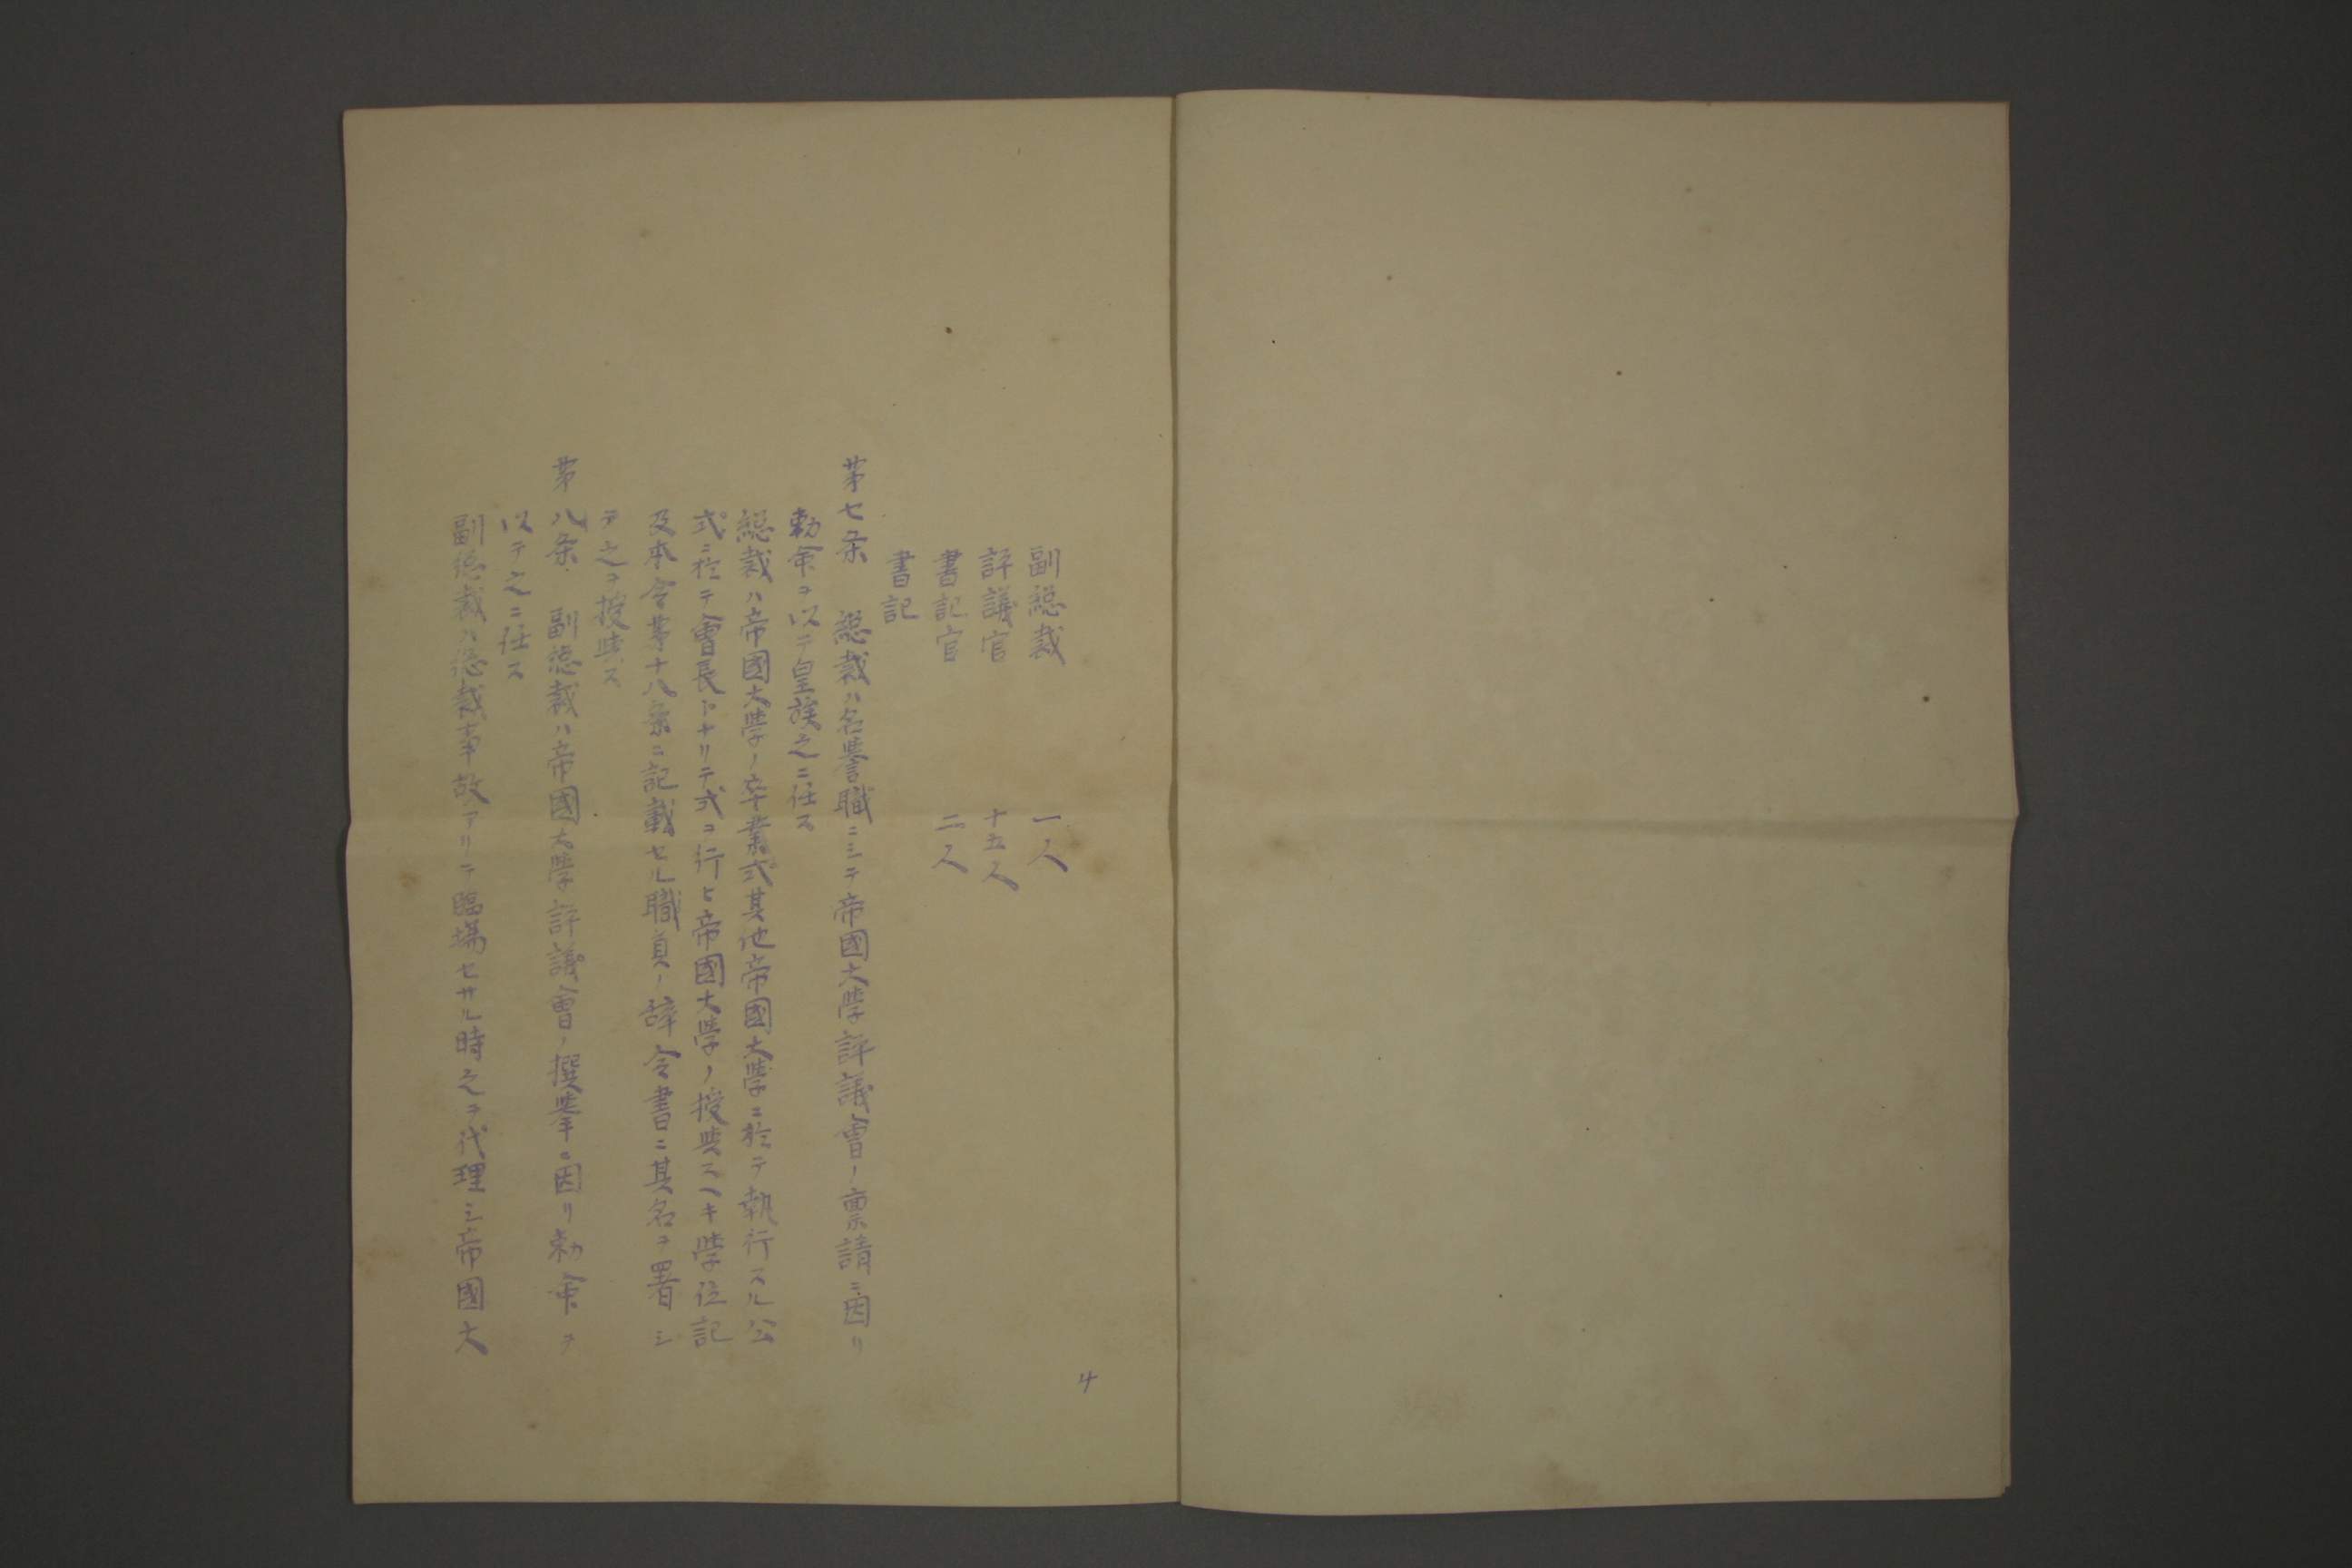 副総裁　一人
評議官　十五人
書記官　二人
書記
第七条　総裁ハ名誉職ニシテ帝國大學評議會ノ稟請ニ因リ
勅命ヲ以テ皇族之ニ任ス
総裁ハ帝國大學ノ卒業式其他帝國大學ニ於テ執行スル公
式ニ於テ會長トナリテ式ヲ行ヒ帝國大學ノ授与スヘキ學位記
及本令第十八条ニ記載セル職員ノ辞令書ニ其名ヲ署シ
テ之ヲ授与ス
第八条　副総裁ハ帝國大學評議會ノ撰挙ニ因リ勅命ヲ
以テ之ニ任ス
副総裁ハ総裁事故アリテ臨場セサル時之ヲ代理シ帝國大
4